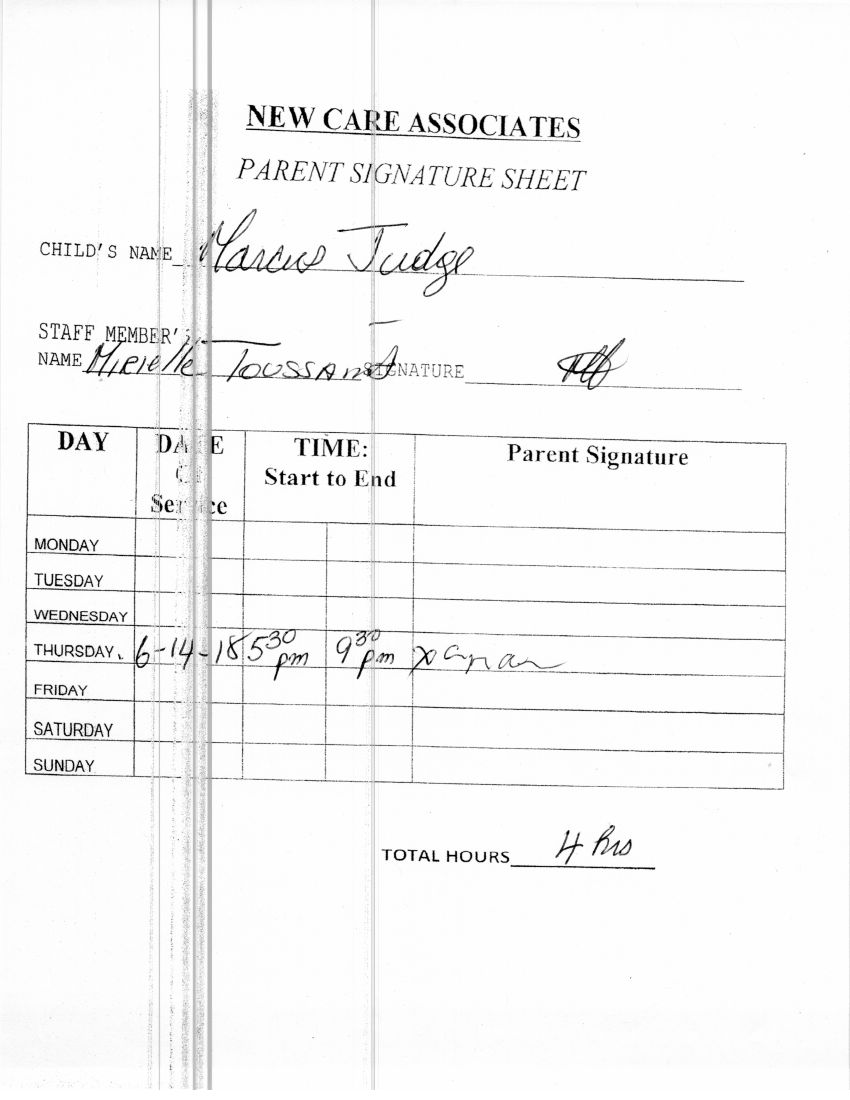 NEW CARE ASSOCIATES
PARENT SIGNATURE SHEET
CHILD'S NAME Marcus Judge
STAFF MEMBER'
NAME Mirielle Toussant SIGNATURE
DAY DATE TIME: Parent Signature
Of Start to End
Service
MONDAY
TUESDAY
WEDNESDAY
THURSDAY 6-14-18 5 30 pm 9 30 pm X
FRIDAY
SATURDAY
SUNDAY
TOTAL HOURS 4 hrs